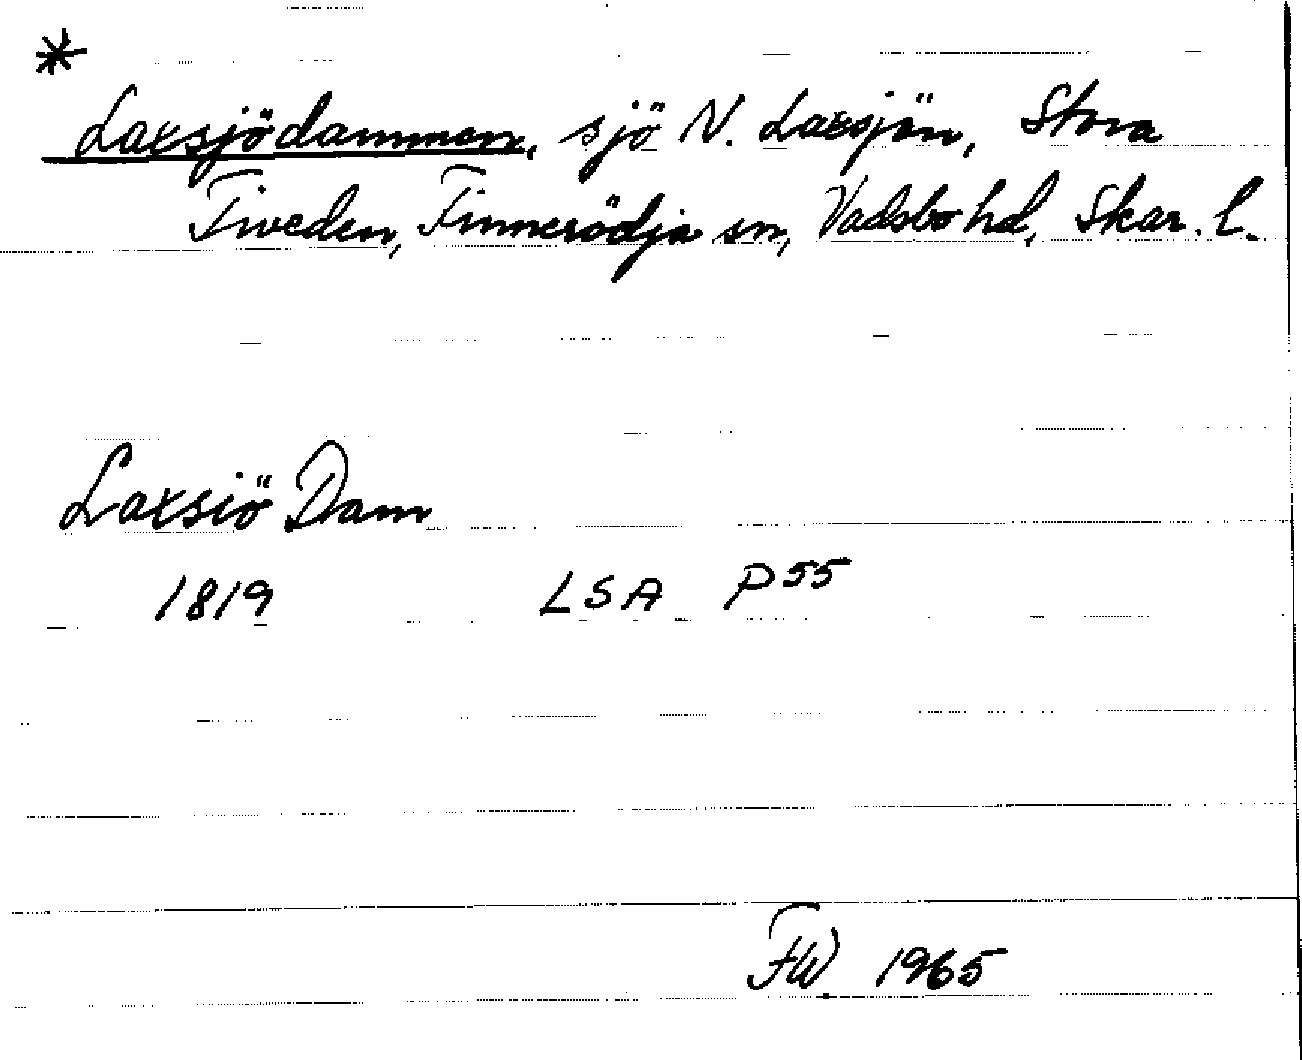 *
Laxsjödammen, sjö N. Laxsjön, Stora
Tiveden, Finnerödja sn, Vadsbo hd, Skar. l.
Laxsiö Dam
1819 LSA P55
FW. 1965